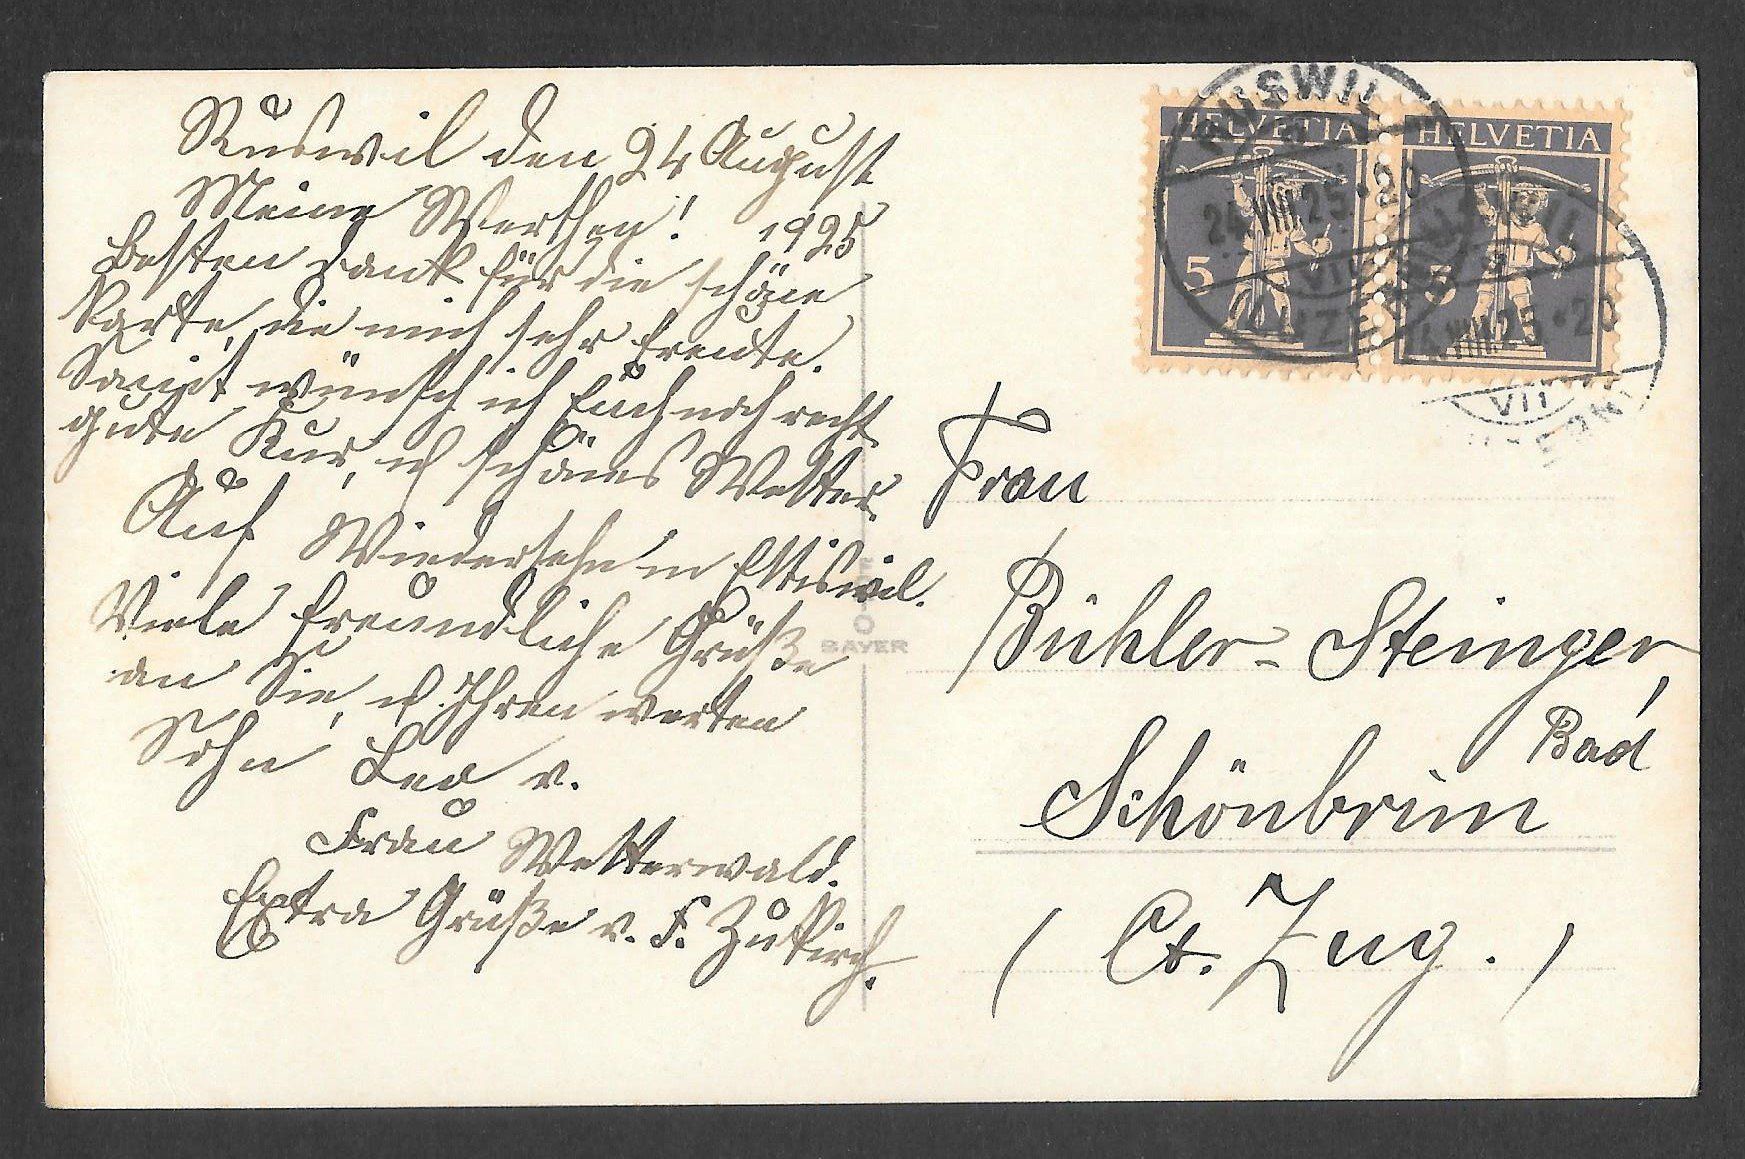 Ruswil den 24 August
1925
Meine Werthen!
Besten Dank für die schöne
Karte, die mich sehr freute.
wünsch ich Euch noch recht
gute Kur, u schönes Wetter.
Auf Wiedersehn in Ettiswil.
Viele freundliche Grüße
an Sie, u. Ihren werten
Sohn Leo v.
Frau Wetterwald.
Extra Grüße v. F. Zukirch.
BAYER
HELVETIA
5
HELVETIA
5
RUSWIL
24.VIII.25.20
LUZERN
VIII.25.20
VII
Frau
Bühler-Steinger,
Bad
Schönbrun
(Ct. Zug.)